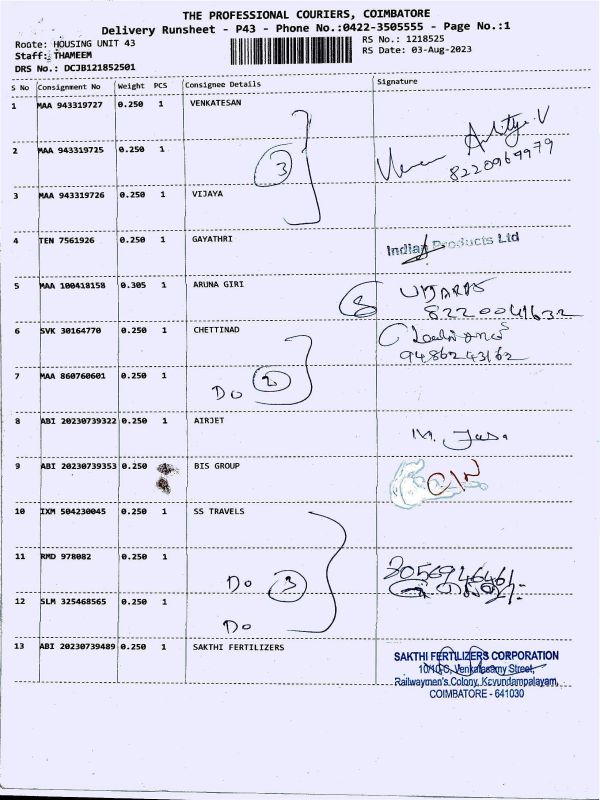 THE PROFESSIONAL COURIERS, COIMBATORE
Delivery Runsheet - P43 - Phone No.:0422-3505555 - Page No.:1
Route: HOUSING UNIT 43
RS No.: 1218525
Staff: THAMEEM
RS Date: 03-Aug-2023
DRS No.: DCJB121852501
S No Consignment No Weight PCS Consignee Details Signature
1 MAA 943319727 0.250 1 VENKATESAN
2 MAA 943319725 0.250 1
3
8220969979
3 MAA 943319726 0.250 1 VIJAYA
4 TEN 7561926 0.250 1 GAYATHRI
Indian Products Ltd
5 MAA 100418158 0.305 1 ARUNA GIRI
8220041632
6 SVK 30164770 0.250 1 CHETTINAD
9486243162
7 MAA 860760601 0.250 1
Do 2
8 ABI 20230739322 0.250 1 AIRJET
9 ABI 20230739353 0.250 BIS GROUP
10 IXM 504230045 0.250 1 SS TRAVELS
11 RMD 978082 0.250 1
Do 3
12 SLM 325468565 0.250 1
Do
13 ABI 20230739489 0.250 1 SAKTHI FERTILIZERS
SAKTHI FERTILIZERS CORPORATION
Venkatasamy Street,
Railwaymen's Colony, Kovundampalayam,
COIMBATORE - 641030